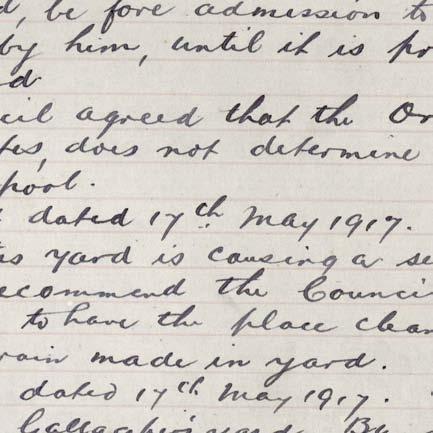 , be fore admission to
by him, until it is pr
d
cil agreed that the Or
tes, does not determine
pool.
dated 17th May 1917.
yard is causing a se
ecommend the Counci
to have the place clean
rain made in yard.
dated 17th May 1917.
Gallagher's yard. By